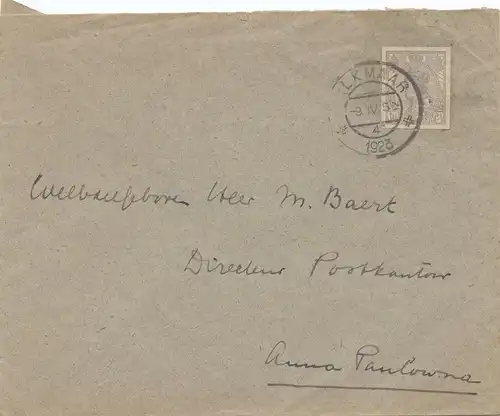 ALKMAAR
1923
Welledelgeboren Heer M. Baert
Directeur Postkantoor
Anna Paulowna